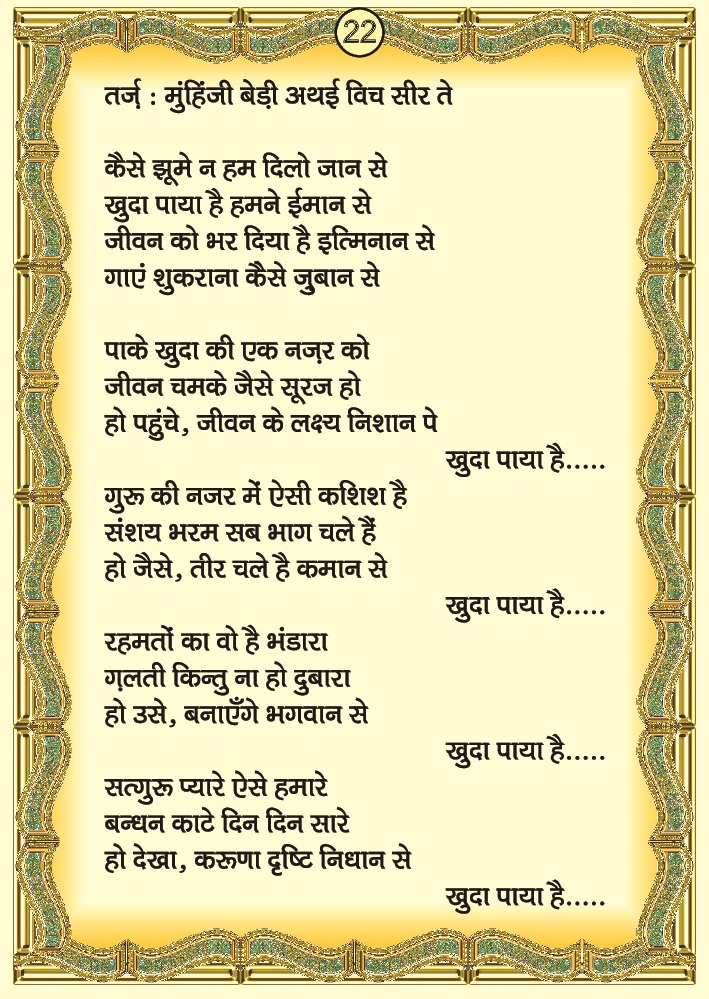 22
तर्ज़ : मुंहिंजी बेड़ी अथई विच सीर ते
कैसे झूमे न हम दिलो जान से
खुदा पाया है हमने ईमान से
जीवन को भर दिया है इत्मिनान से
गाएं शुकराना कैसे जुबान से
पाके खुदा की एक नज़र को
जीवन चमके जैसे सूरज हो
हो पहुंचे, जीवन के लक्ष्य निशान पे
खुदा पाया है.....
गुरू की नजर में ऐसी कशिश है
संशय भरम सब भाग चले हैं
हो जैसे, तीर चले है कमान से
खुदा पाया है.....
रहमतों का वो है भंडारा
ग़लती किन्तु ना हो दुबारा
हो उसे, बनाएँगे भगवान से
खुदा पाया है.....
सत्गुरू प्यारे ऐसे हमारे
बन्धन काटे दिन दिन सारे
हो देखा, करूणा दृष्टि निधान से
खुदा पाया है.....